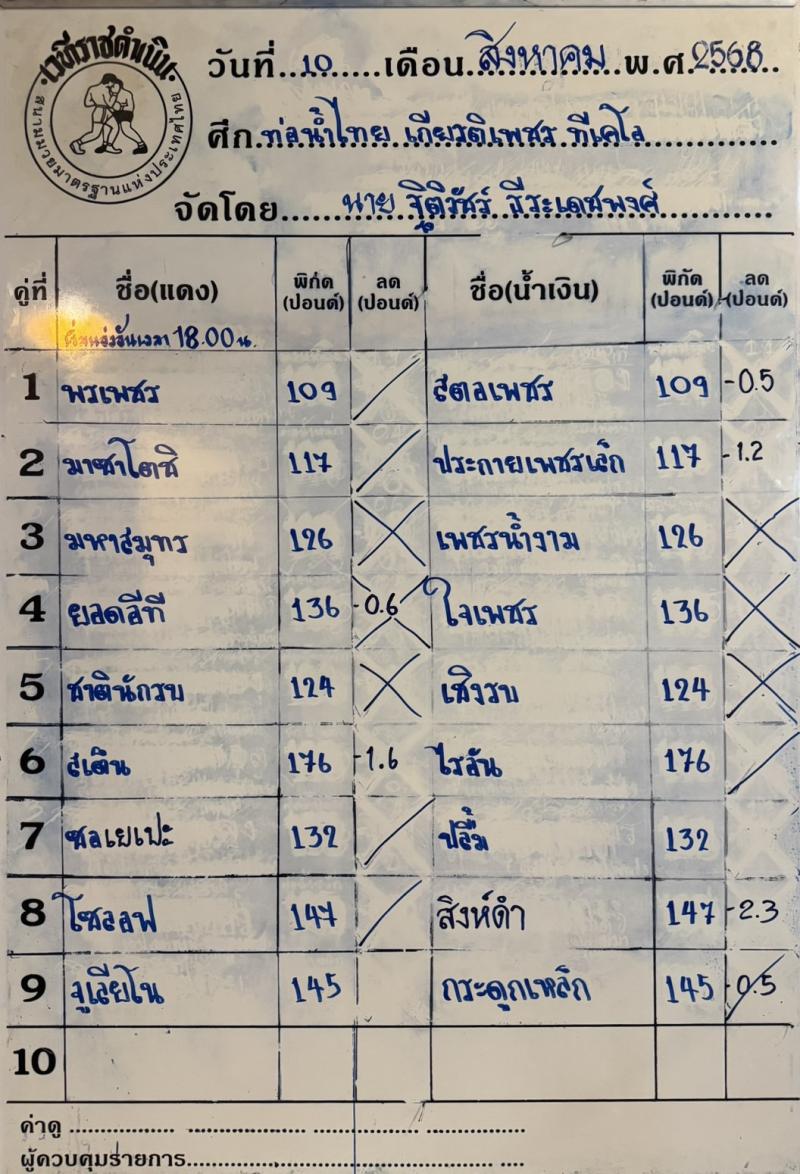 เวทีราชดำเนิน
สนามมวยมาตรฐานแห่งประเทศไทย
วันที่..10.....เดือน.สิงหาคม..พ.ศ.2568..
ศึก.ท่อน้ำไทย เกียรติเพชร ทีเคโอ.............
จัดโดย......นาย ฐิติวัชร์ ธีระเดชพงศ์...........
คู่ที่ ชื่อ(แดง) พิกัด (ปอนด์) ลด (ปอนด์) ชื่อ(น้ำเงิน) พิกัด (ปอนด์) ลด (ปอนด์)
เวลา 18.00 น.
1 พรเพชร 109 สตลเพชร 109 -0.5
2 มาซาโตชิ 117 ประกายเพชรเล็ก 117 -1.2
3 มหาสมุทร 126 เพชรน้ำงาม 126
4 ยอดอีที 136 -0.6 ใจเพชร 136
5 ชาตินักรบ 124 เชิงรบ 124
6 สเติน 176 -1.6 ไรอัน 176
7 ซอเยเปะ 132 ปลื้ม 132
8 โซลอฟ 147 สิงห์ดำ 147 -2.3
9 จูเลียโน 145 กระดูกเหล็ก 145 -0.5
10
ค่าดู ................ .................. .................. ...............
ผู้ควบคุมรายการ...............................................